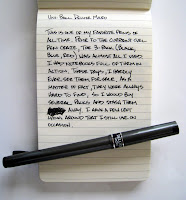 UNI BALL DELUXE MICRO
THIS IS ONE OF MY FAVORITE PENS OF
ALL TIME. PRIOR TO THE CURRENT GEL
PEN CRAZE, THE 3-PACK (BLACK,
BLUE, RED) WAS ALMOST ALL I USED.
I HAD NOTEBOOKS FULL OF THEM IN
ACTION. THESE DAYS, I HARDLY
EVER SEE THEM FOR SALE. AS A
MATTER OF FACT, THEY WERE ALWAYS
HARD TO FIND, SO I WOULD BUY
SEVERAL PACKS AND STASH THEM
AWAY. I HAVE A FEW LEFT
AROUND THAT I STILL USE ON
OCCASION.